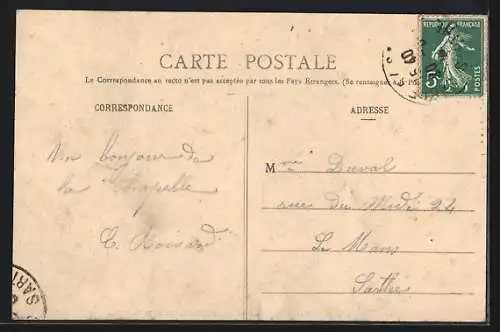 CARTE POSTALE
La Correspondance au recto n'est pas acceptée par tous les Pays Etrangers. (Se renseigner à la Poste)
RÉPUBLIQUE FRANÇAISE
5c
POSTES
CORRESPONDANCE
ADRESSE
Un bonjour de
la Chapelle
Mme Duval
rue du Midi 24
Le Mans
Sarthe
SART